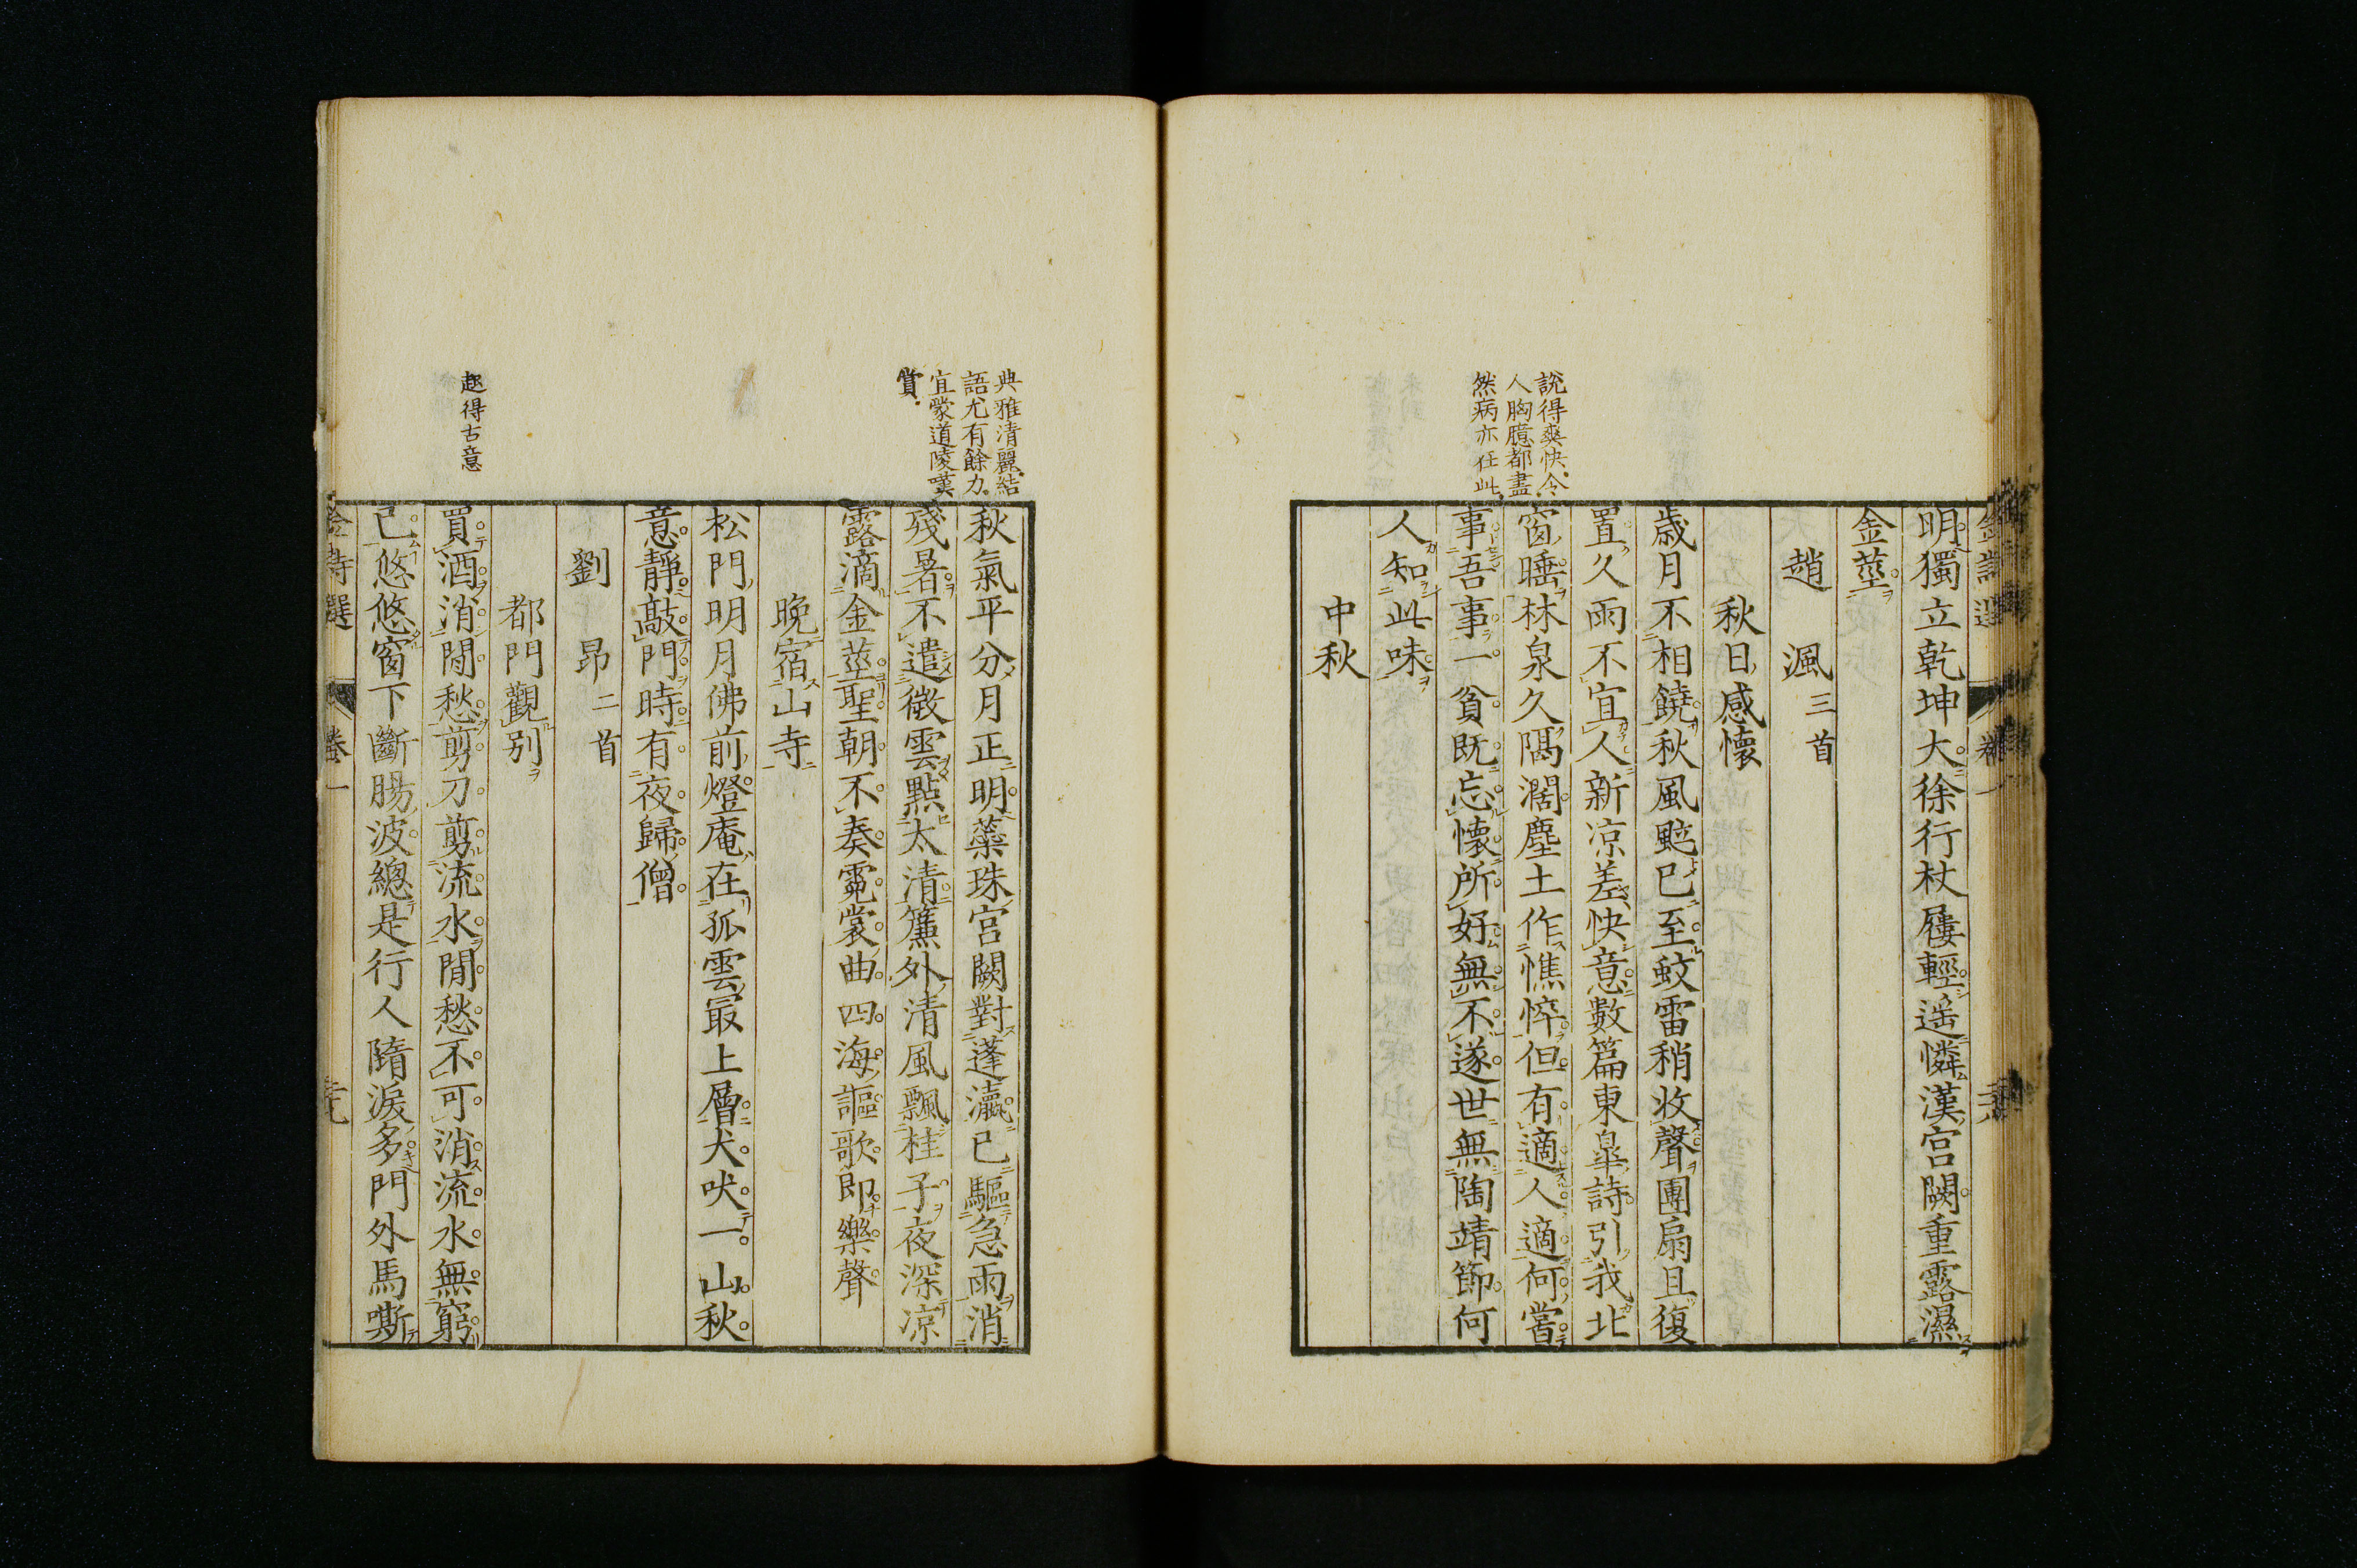 明獨立乾坤大徐行杖屨輕遥憐漢宮闕重露濕
金莖
趙渢 三首
秋日感懷
歳月不相饒秋風颭已至蚊雷稍收聲團扇且復
置久雨不宜人新凉差快意數篇東臯詩引我北
窗睡林泉久隔濶塵土作憔悴但有適人適何嘗
事吾事一貧既忘懷所好無不遂世無陶靖節何
人知此味
中秋
説得爽快令
人胸臆都盡
然病亦在此
秋氣平分月正明蘂珠宮闕對蓬瀛已驅急雨消
殘暑不遣微雲點太清簾外清風飄桂子夜深凉
露滴金莖聖朝不奏霓裳曲四海謳歌即樂聲
晩宿山寺
松門明月佛前燈庵在孤雲最上層犬吠一山秋
意靜敲門時有夜歸僧
劉昂 二首
都門觀別
買酒消閒愁剪刀剪流水閒愁不可消流水無窮
已悠悠窗下斷腸波總是行人隋淚多門外馬嘶
典雅清麗結
語尤有餘力
宜蒙道陵嘆
賞
趣得古意
金詩選 卷一